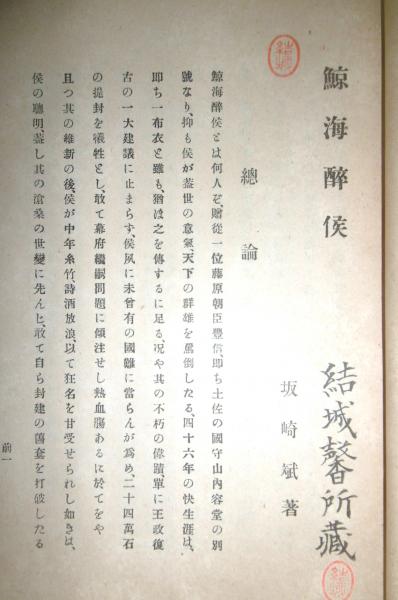 鯨海醉侯
坂崎斌著
總論
鯨海醉侯とは何人ぞ、贈從一位藤原朝臣豐信、即ち土佐の國守山內容堂の別
號なり、抑も侯が蓋世の意氣、天下の群雄を罵倒したる、四十六年の快生涯は、
即ち一布衣と雖も、猶ほ之を傳するに足る、况や其の不朽の偉蹟單に王政復
古の一大建議に止まらず、侯夙に未曾有の國難に當らんが爲め、二十四萬石
の提封を犧牲とし、敢て幕府繼嗣問題に傾注せし熱血腸あるに於てをや
且つ其の維新の後、侯が中年、糸竹、詩酒放浪、以て狂名を甘受せられし如きは、
侯の聰明、蓋し其の滄桑の世變に先んじ、敢て自ら封建の舊套を打破したる
前一
結城馨所藏